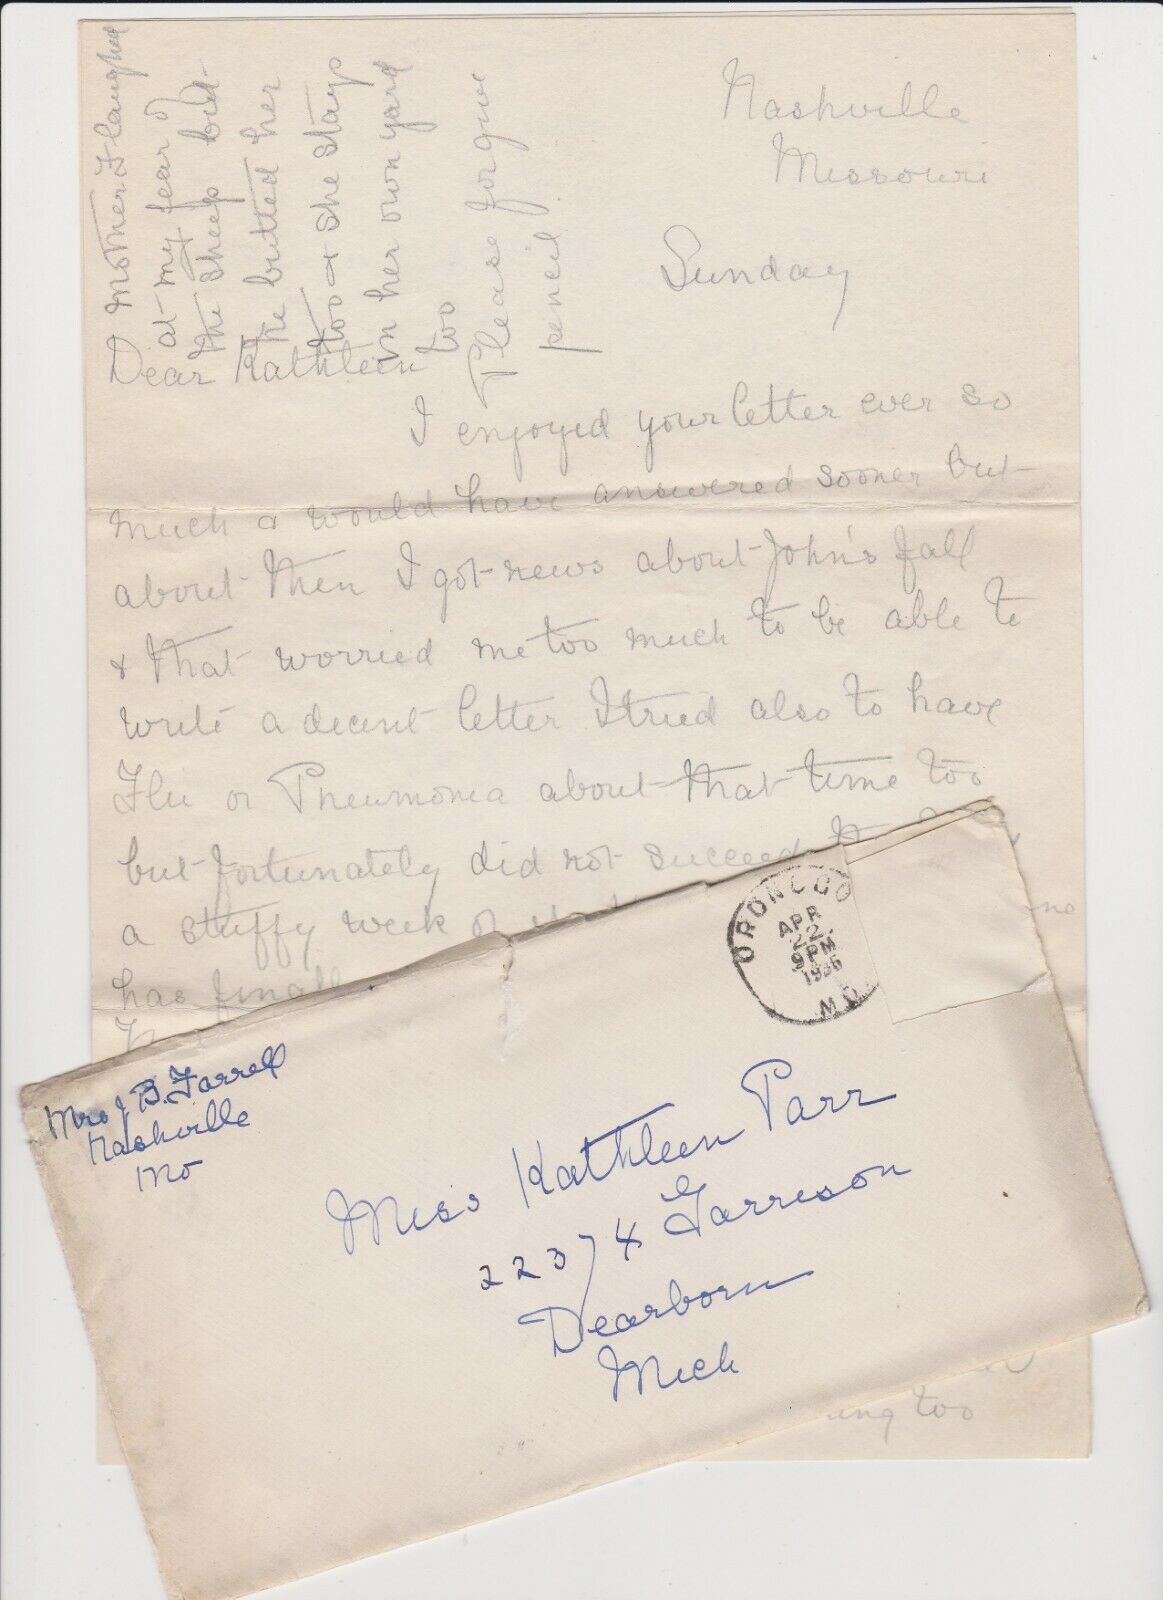 Nashville
Missouri
Sunday
Mother F laughed
at my fear of
the sheep but
he butted her
too & she stays
in her own yard
too
Please forgive
pencil.
Dear Kathleen
I enjoyed your letter ever so
much & would have answered sooner but
about then I got news about John's fall
& that worried me too much to be able to
write a decent letter I tried also to have
Flu or Pneumonia about that time too
but fortunately did not succeed
a stuffy week or
has finall
ung too
ORONOGO
APR
22
9 PM
1936
MO.
Mrs J B. Farrell
Nashville
Mo
Miss Kathleen Parr
22374 Garrison
Dearborn
Mich